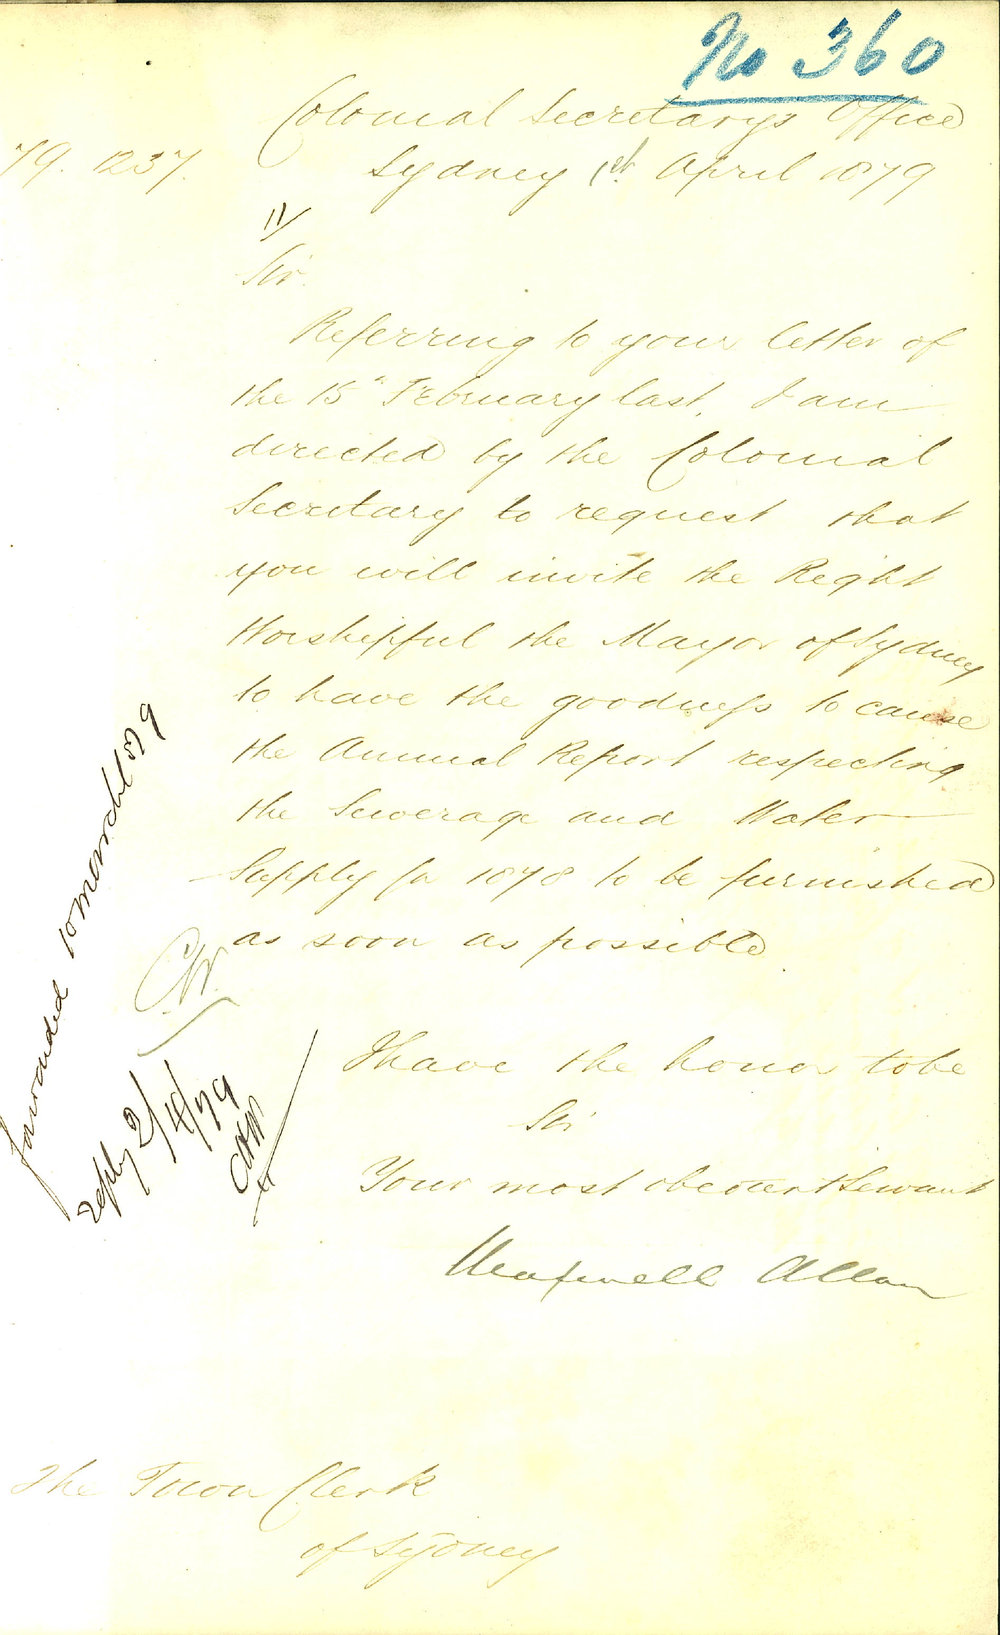 No 360
Colonial Secretary's Office
79. 1237.
Sydney 1st April 1879
11/
Sir.
Referring to your letter of
the 15" February last, I am
directed by the Colonial
Secretary to request that
you will invite the Right
Worshipful the Mayor of Sydney
to have the goodness to cause
the Annual Report respecting
the Sewerage and Water
Supply for 1878 to be furnished
as soon as possible.
I have the honor to be
Sir
Your most obedient Servant
Maxwell Allan
The Town Clerk
of Sydney
forwarded 10 March 1879
reply 2/4/79